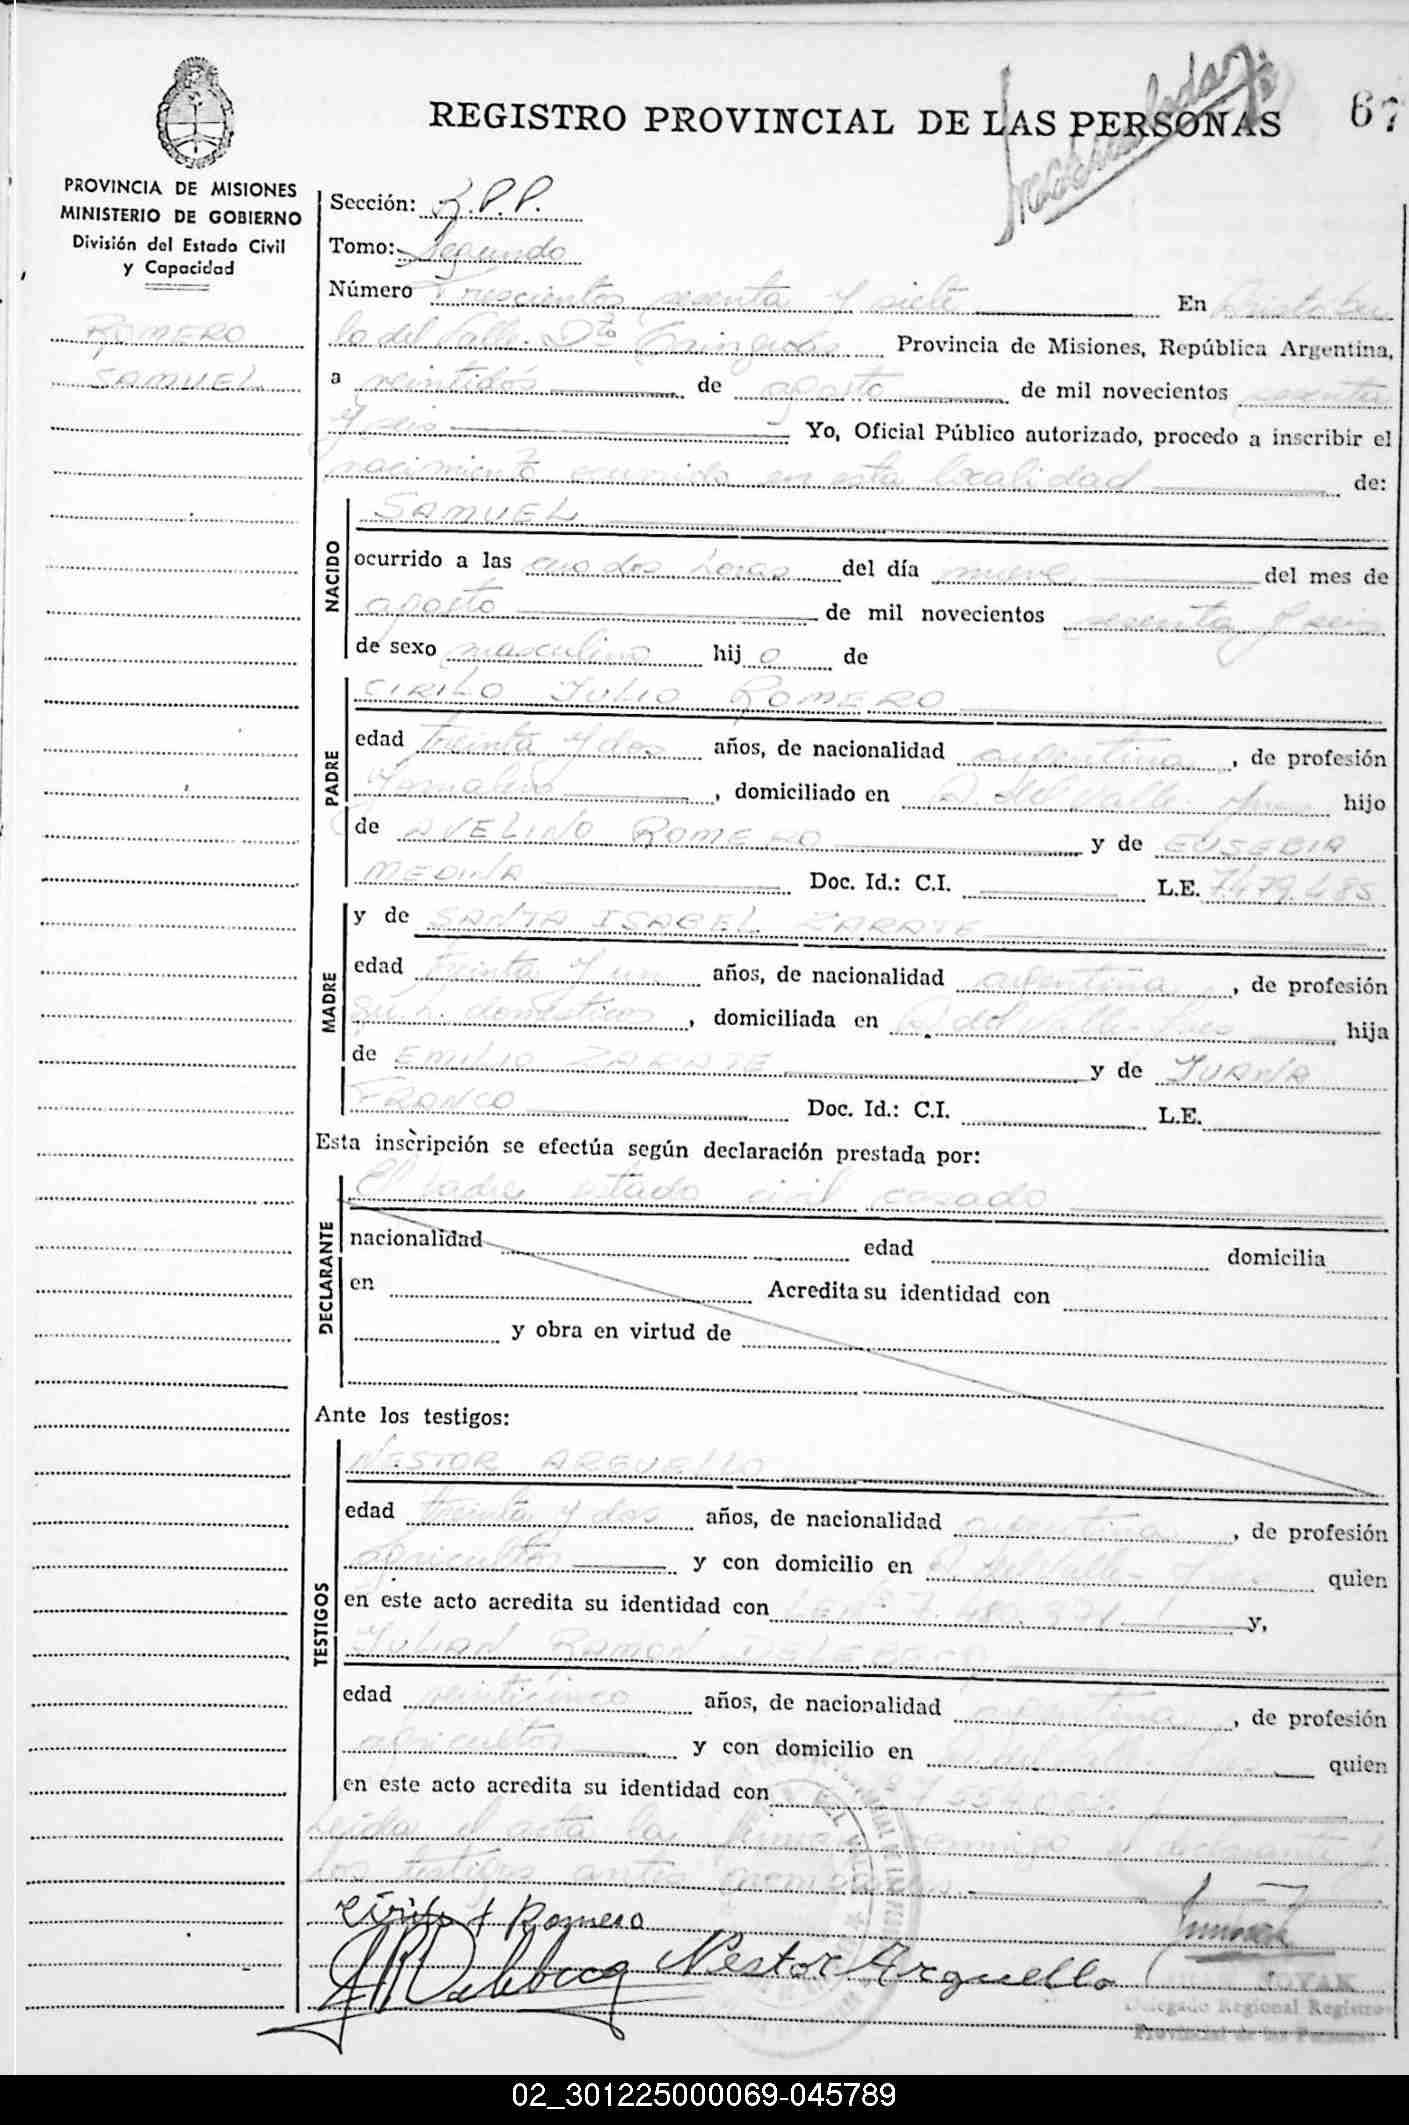 REGISTRO PROVINCIAL DE LAS PERSONAS 67
PROVINCIA DE MISIONES
MINISTERIO DE GOBIERNO
División del Estado Civil
y Capacidad
ROMERO
SAMUEL
Sección: R.P.P.
Tomo: Segundo
Número Trescientos sesenta y siete En Aristóbu
lo del Valle Dto Cainguás Provincia de Misiones, República Argentina,
a veintidós de agosto de mil novecientos sesenta
y seis Yo, Oficial Público autorizado, procedo a inscribir el
nacimiento ocurrido en esta localidad de:
NACIDO
SAMUEL
ocurrido a las dos horas del día nueve del mes de
agosto de mil novecientos sesenta y seis
de sexo masculino hijo de
PADRE
CIRILO JULIO ROMERO
edad treinta y dos años, de nacionalidad argentina, de profesión
Jornalero, domiciliado en A. del Valle hijo
de AVELINO ROMERO y de EUSEBIA
MEDINA Doc. Id.: C.I. L.E. 7.479.485
MADRE
y de SANTA ISABEL ZARATE
edad treinta y un años, de nacionalidad argentina, de profesión
domésticos, domiciliada en A. del Valle hija
de EMILIO ZARATE y de JUANA
FRANCO Doc. Id.: C.I. L.E.
Esta inscripción se efectúa según declaración prestada por:
DECLARANTE
El padre estado civil casado
nacionalidad edad domicilia
en Acredita su identidad con
y obra en virtud de
Ante los testigos:
TESTIGOS
NESTOR ARGUELLO
edad treinta y dos años, de nacionalidad argentina, de profesión
agricultor y con domicilio en A. del Valle quien
en este acto acredita su identidad con L.E.Nº 7.480.971 y,
JULIAN RAMON DELEBECQ
edad veinticinco años, de nacionalidad argentina, de profesión
agricultor y con domicilio en A. del Valle quien
en este acto acredita su identidad con
Leída el acta la firman conmigo el declarante y
los testigos antes
Cirilo J Romero
JRDelebecq Nestor Arguello
Delegado Regional Registro
Provincial de las Personas
02_301225000069-045789